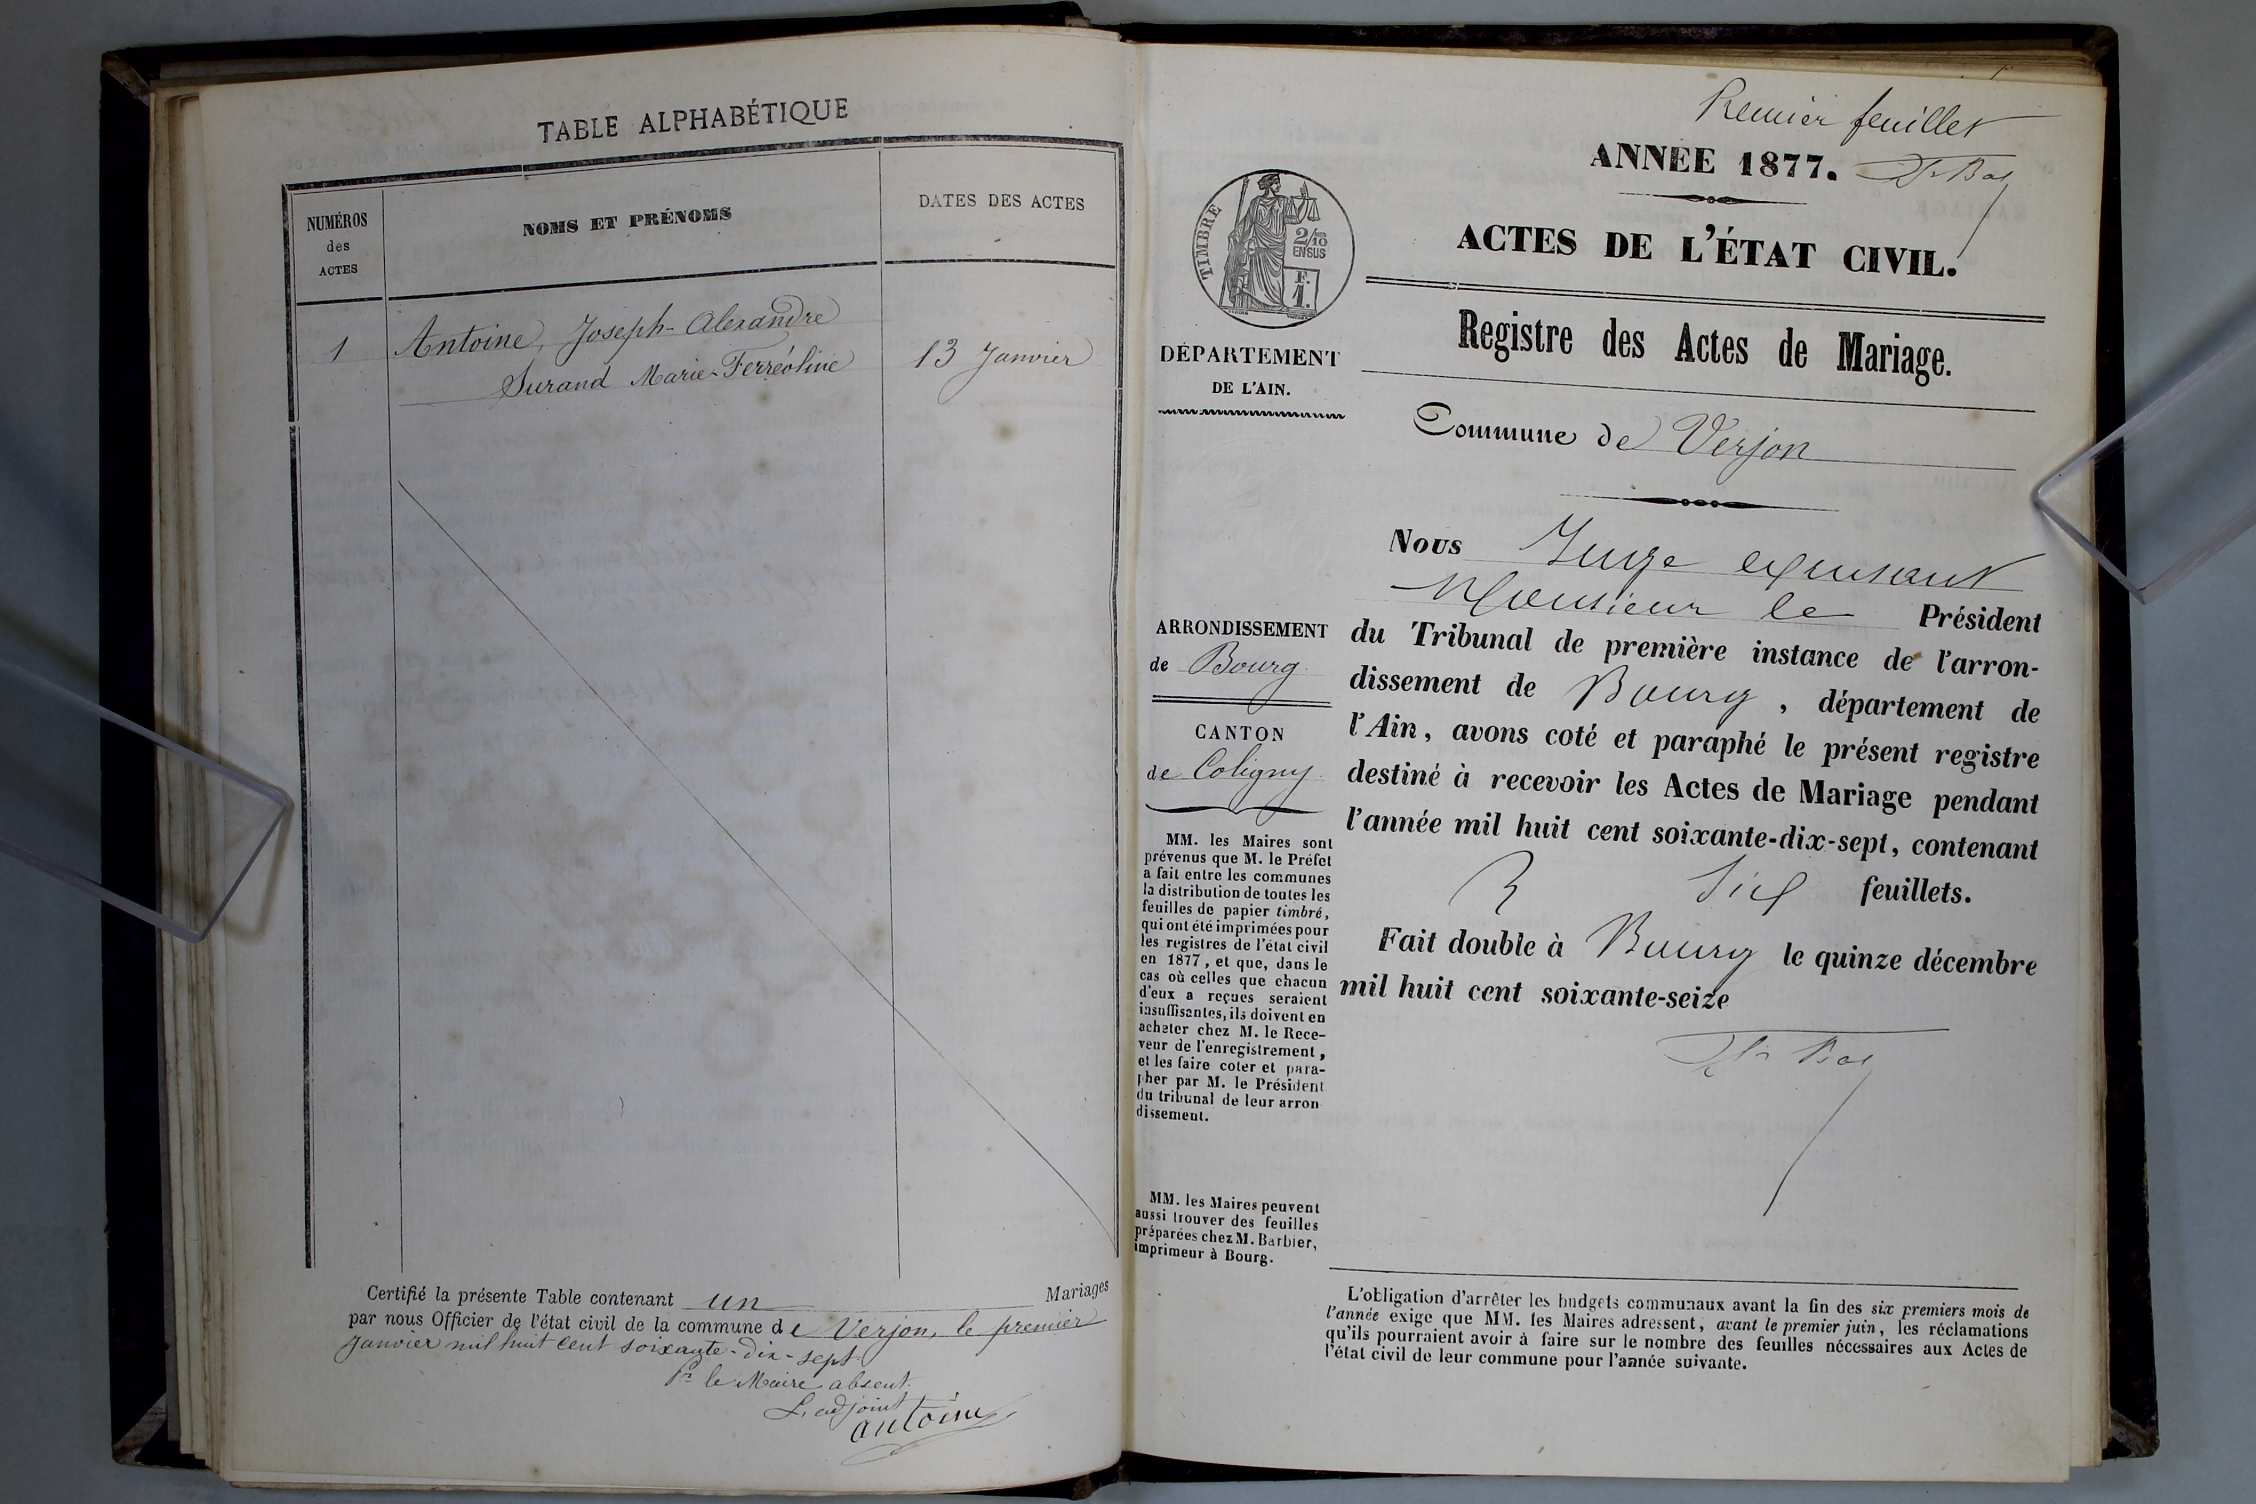 TABLE ALPHABÉTIQUE
NUMÉROS
des
ACTES
NOMS ET PRÉNOMS
DATES DES ACTES
1
Antoine, Joseph-Alexandre
Surand Marie-Ferréoline
13 Janvier
Certifié la présente Table contenant un Mariages
par nous Officier de l'état civil de la commune de Verjon, le premier
janvier mil huit cent soixante-dix-sept.
Pr le Maire absent.
L'adjoint
antoine
Premier feuillet
ANNÉE 1877.
ACTES DE L'ÉTAT CIVIL.
TIMBRE
2/10
EN SUS
F.
1.
DÉPARTEMENT
DE L'AIN.
Registre des Actes de Mariage.
Commune de Verjon
ARRONDISSEMENT
de Bourg
CANTON
de Coligny
MM. les Maires sont
prévenus que M. le Préfet
a fait entre les communes
la distribution de toutes les
feuilles de papier timbré,
qui ont été imprimées pour
les registres de l'état civil
en 1877, et que, dans le
cas où celles que chacun
d'eux a reçues seraient
insuffisantes, ils doivent en
acheter chez M. le Rece-
veur de l'enregistrement,
et les faire coter et para-
pher par M. le Président
du tribunal de leur arron
dissement.
MM. les Maires peuvent
aussi trouver des feuilles
préparées chez M. Barbier,
imprimeur à Bourg.
Nous Juge
Monsieur le Président
du Tribunal de première instance de l'arron-
dissement de Bourg, département de
l'Ain, avons coté et paraphé le présent registre
destiné à recevoir les Actes de Mariage pendant
l'année mil huit cent soixante-dix-sept, contenant
Six feuillets.
Fait double à Bourg le quinze décembre
mil huit cent soixante-seize
L'obligation d'arrêter les budgets communaux avant la fin des six premiers mois de
l'année exige que MM. les Maires adressent, avant le premier juin, les réclamations
qu'ils pourraient avoir à faire sur le nombre des feuilles nécessaires aux Actes de
l'état civil de leur commune pour l'année suivante.